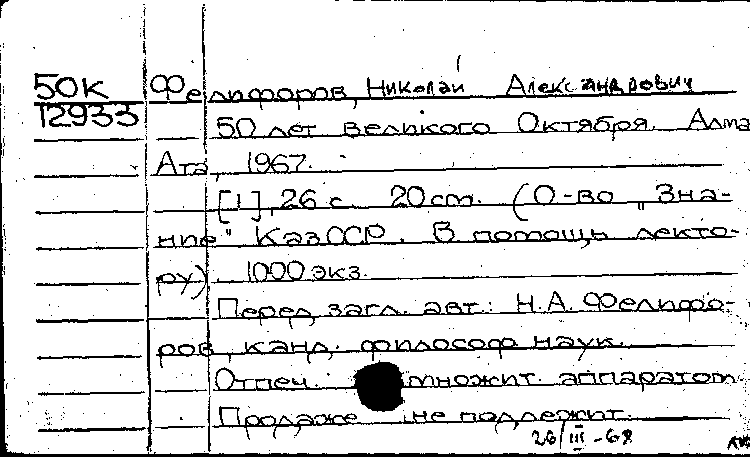 50к Фелифоров, Николай Александрович
12933 50 лет великого Октября. Алма
Ата, 1967.
[1], 26 с. 20 cm. (О-во "Зна-
ние" КазССР. В помощь лекто-
ру). 1000 экз.
Перед загл. авт.: Н.А. Фелифо-
ров, канд. философ наук.
Отпеч. множит. аппаратом
Продаже не подлежит.
26/III-68